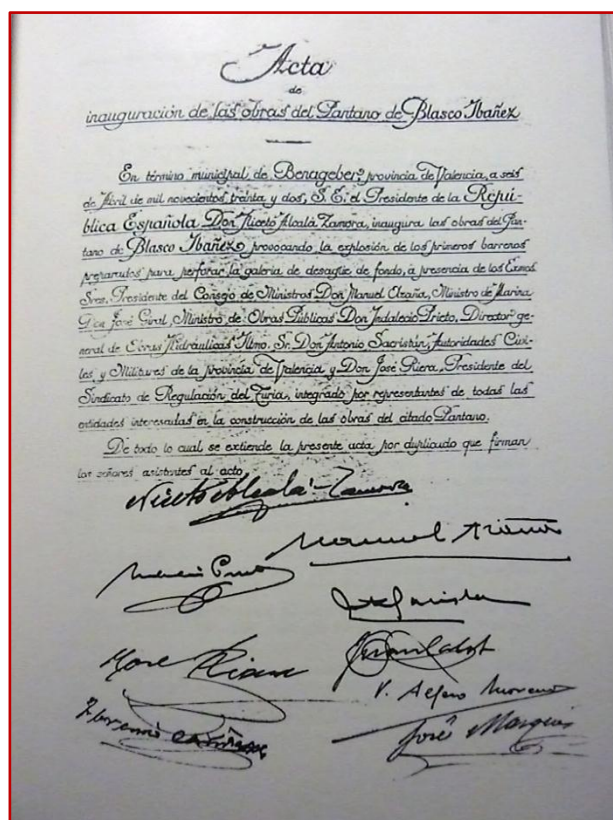 Acta
de
inauguración de las obras del Pantano de Blasco Ibañez
En término municipal de Benageber, provincia de Valencia, a seis
de Abril de mil novecientos trainta y dos, S.E. el Presidente de la Repú-
blica Española Don Niceto Alcalá Zamora, inaugura las obras del Pan-
tano de Blasco Ibañez provocando la explosión de los primeros barrenos
preparados para perforar la galeria de desagüe de fondo, a presencia de los Exmos
Sres. Presidente del Consejo de Ministros Don Manuel Azaña, Ministro de Marina
Don José Giral, Ministro de Obras Públicas Don Indalecio Prieto, Director ge-
neral de Obras Hidráulicas Iltmo. Sr. Don Antonio Sacristán, Autoridades Civi-
les y Militares de la provincia de Valencia y Don José Riera, Presidente del
Sindicato de Regulación del Turia, integrado por representantes de todas las
entidades interesadas en la construcción de las obras del citado Pantano.
De todo lo cual se extiende la presente acta por duplicado que firman
los señores asistentes al acto
Niceto Alcalá-Zamora
Manuel Azaña
Indalecio Prieto
José
V. Alfaro Moreno
José Marqués